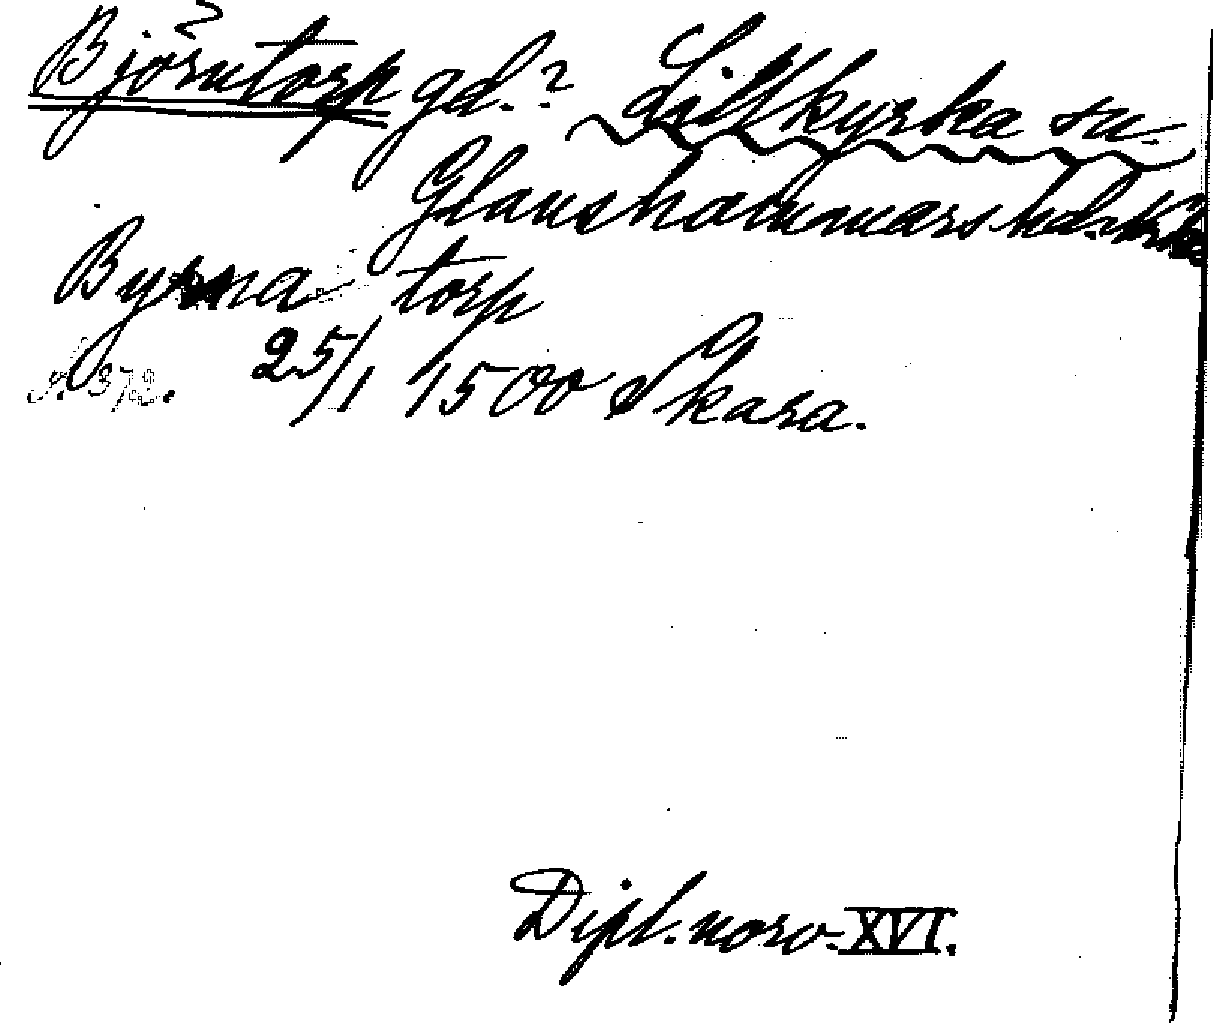 Björntorp gd.? Lillkyrka sn.
Glanshammars hd.
Byrna torp
s. 372. 25/1 1500 Skara.
Dipl. norv. XVI.